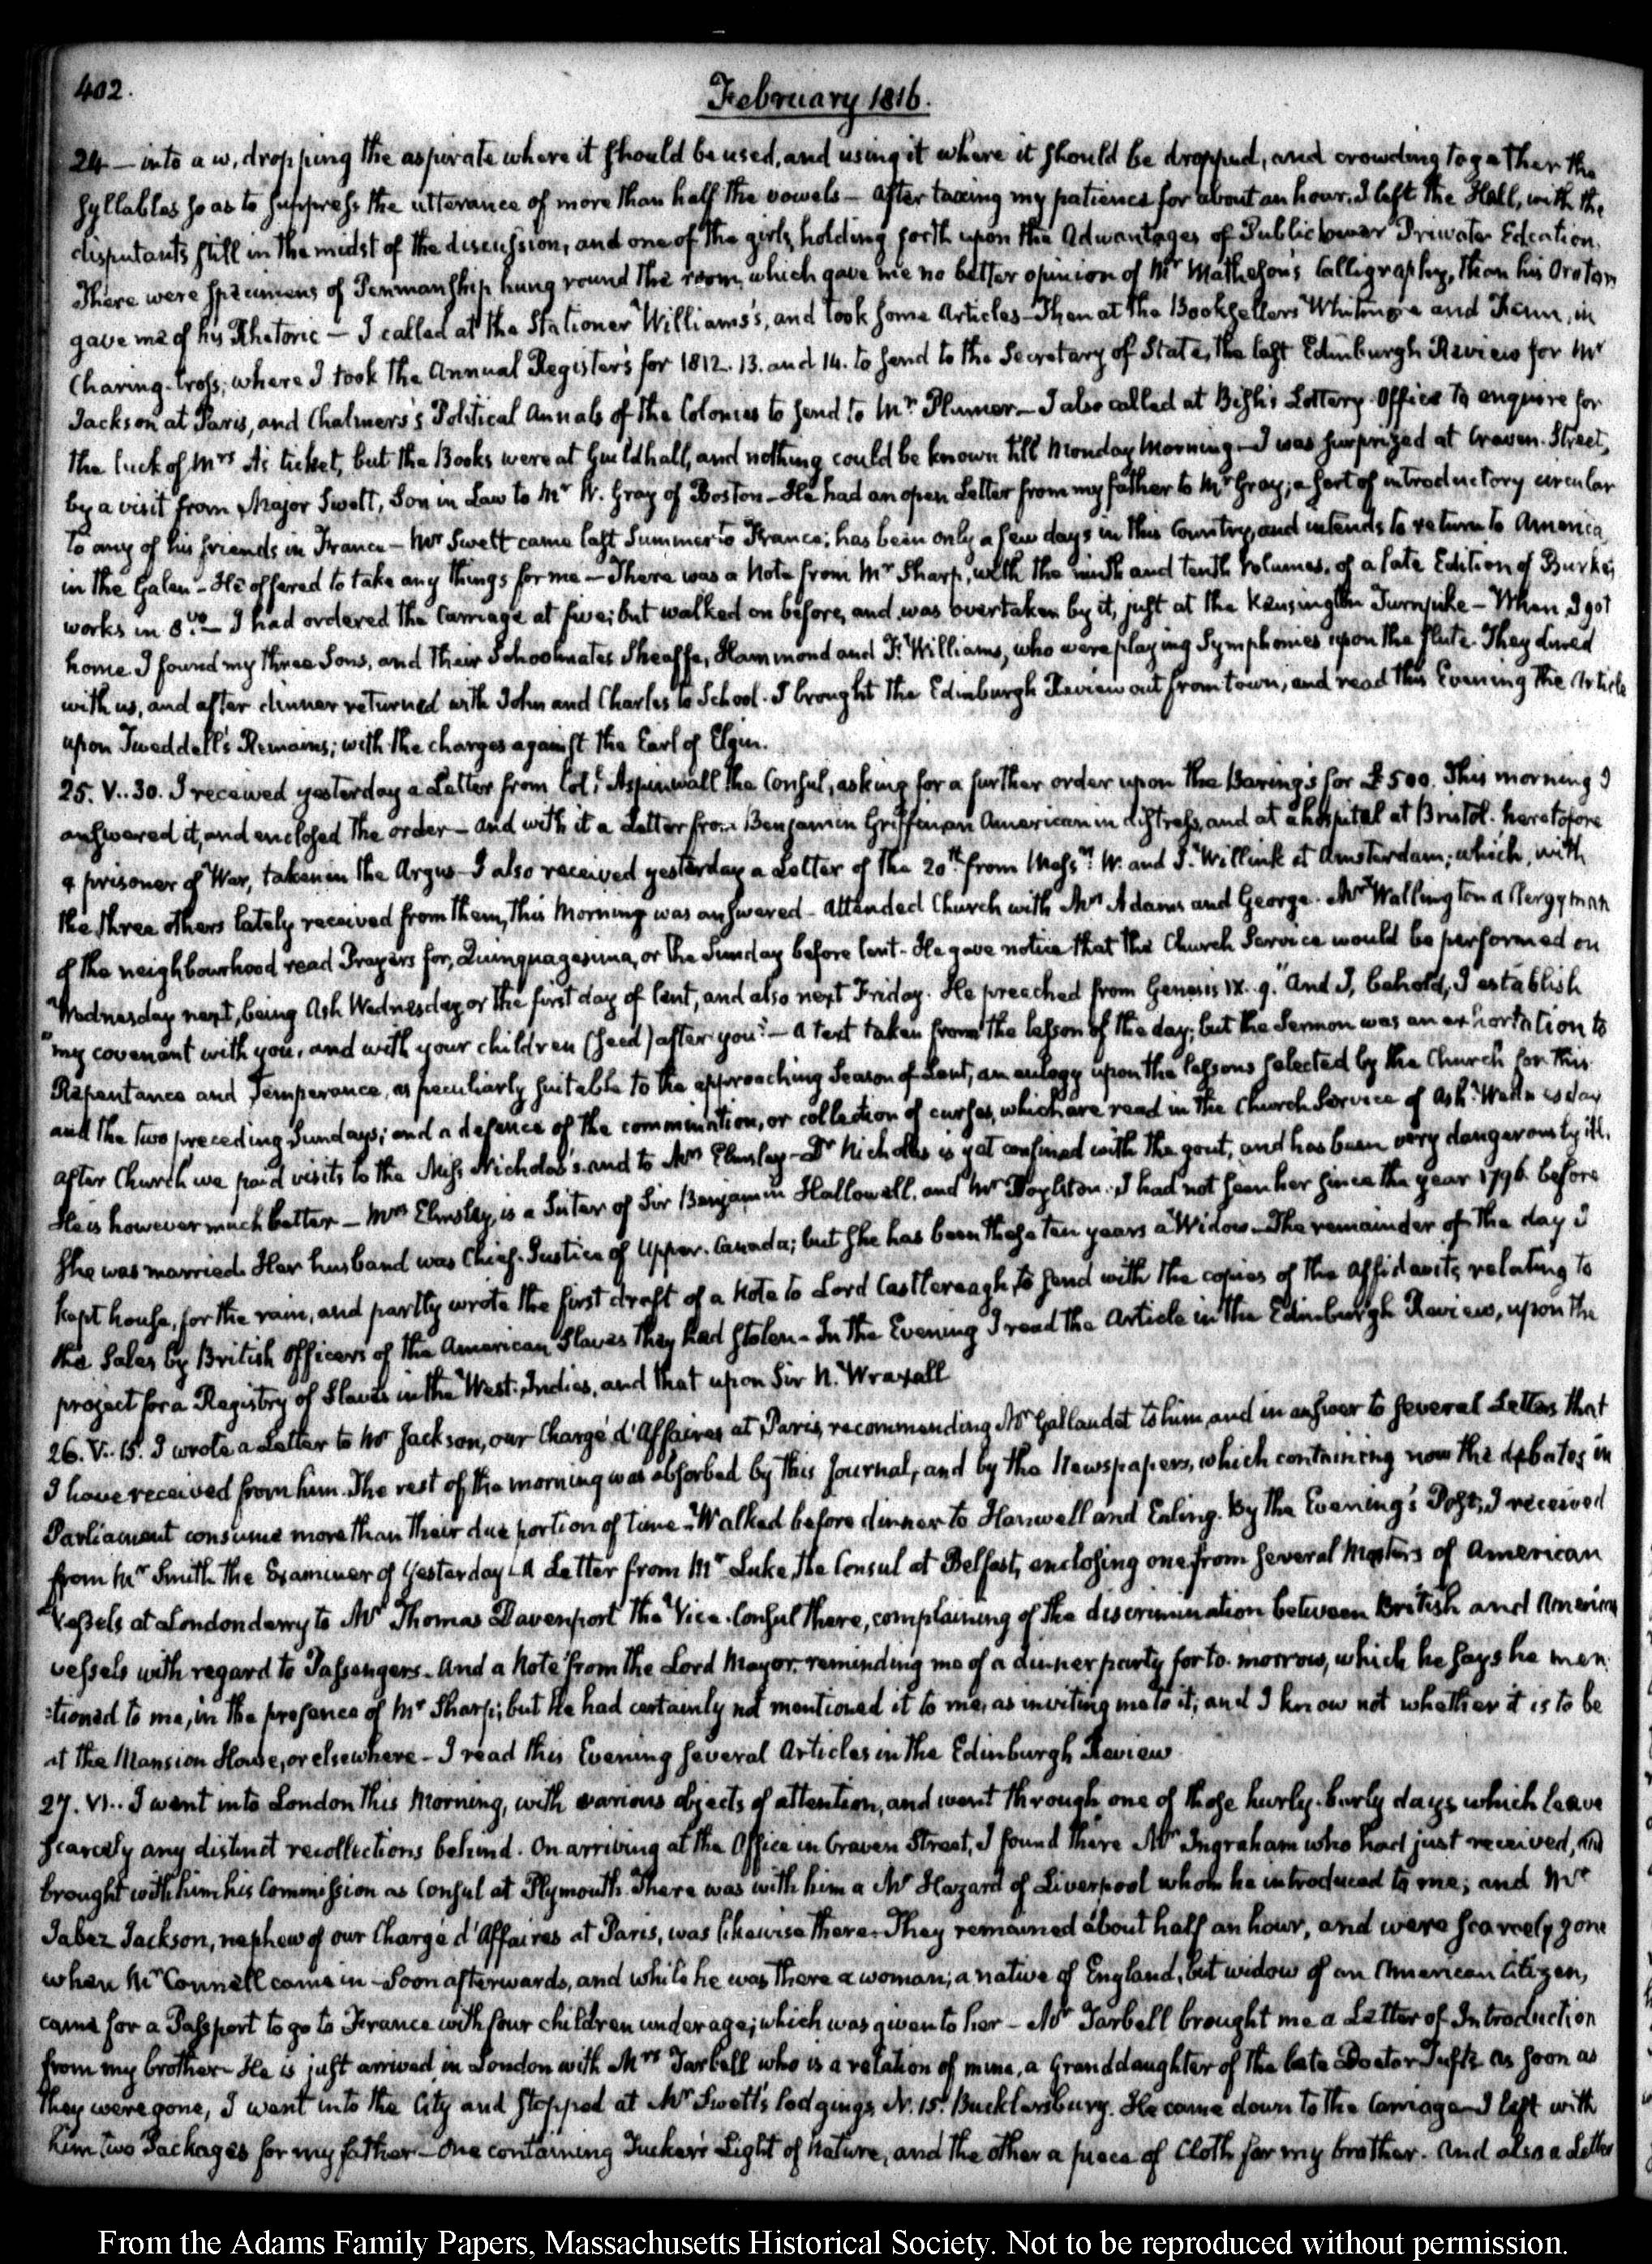 402.
February 1816.
24 — into a w, dropping the aspirate where it should be used, and using it where it should be dropped, and crowding together the
syllables so as to suppress the utterance of more than half the vowels — After taxing my patience for about an hour. I left the Hall, with the
disputants still in the midst of the discussion, and one of the girls, holding forth upon the Adwantages of Public Priwate Edcation.
There were specimens of Penmanship hung round the room, which gave me no better opinion of Mr Matheson's Calligraphy, than his Orators
gave me of his Rhetoric — I called at the Stationer Williams's, and took some Articles — Then at the Booksellers Whitmore and Fenn, in
Charing-Cross; where I took the Annual Register's for 1812. 13. and 14. to send to the Secretary of State, the last Edinburgh Review for Mr
Jackson at Paris, and Chalmers's Political Annals of the Colonies to send to Mr Plumer — I also called at Bish's Lottery-Office to enquire for
the luck of Mrs A's ticket, but the Books were at Guildhall, and nothing could be known till Monday Morning — I was surprized at Craven-Street,
by a visit from Major Swett, Son in Law to Mr W. Gray of Boston — He had an open Letter from my father to Mr Gray; a sort of introductory circular
to any of his friends in France — Mr Swett came last Summer to France; has been only a few days in this Country, and intends to return to America
in the Galen — He offered to take any things for me — There was a Note from Mr Sharp, with the ninth and tenth Volumes, of a late Edition of Burke's
works in 8.vo — I had ordered the Carriage at five; but walked on before, and was overtaken by it, just at the Kensington Turnpike — When I got
home I found my three Sons, and their Schoolmates Sheaffe, Hammond and F. Williams, who were playing Symphonies upon the flute. They dined
with us, and after dinner returned with John and Charles to School. I brought the Edinburgh Review out from town, and read this Evening the Article
upon Tweddell's Remains; with the charges against the Earl of Elgin.
25. V..30. I received yesterday a Letter from Col. Aspinwall the Consul, asking for a further order upon the Baring's for £500. This morning I
answered it, and enclosed the order — and with it a Letter from Benjamin Griffin an American in distress, and at a hospital at Bristol. heretofore
a prisoner of War, taken in the Argus — I also received yesterday a Letter of the 20th from Messrs W. and J. Willink at Amsterdam; which, with
the three others lately received from them, this Morning was answered — Attended Church with Mrs Adams and George. Mr Wallington a Clergyman
of the neighbourhood read Prayers for, Quinquagesima, or the Sunday before lent — He gave notice that the Church Service would be performed on
Wednesday next, being Ash Wednesday or the first day of lent, and also next Friday. He preached from Genesis IX. 9. "And I, behold, I establish
"my covenant with you, and with your children (seed) after you" — a text taken from the lesson of the day; but the Sermon was an exhortation to
Repentance and Temperance, as peculiarly suitable to the approaching Season of Lent, an eulogy upon the lessons selected by the Church for this
and the two preceding Sundays; and a defence of the commination, or collection of curses, which are read in the Church Service of Ash-Wednesday
after Church we paid visits to the Miss Nicholas's and to Mrs Elmsley — Dr Nicholas is yet confined with the gout, and has been very dangerously ill.
He is however much better — Mrs Elmsley, is a Sister of Sir Benjamin Hallowell, and Mr Boylston. I had not seen her since the year 1796. before
she was married. Her husband was Chief-Justice of Upper-Canada; but she has been these ten years a Widow — The remainder of the day I
kept house, for the rain, and partly wrote the first draft of a Note to Lord Castlereagh, to send with the copies of the affidavits relating to
the Sales by British Officers of the American Slaves they had stolen — In the Evening I read the Article in the Edinburgh Review, upon the
project for a Registry of Slaves in the West-Indies, and that upon Sir N. Wraxall
26. V..15. I wrote a Letter to Mr Jackson, our Chargé d'Affaires at Paris, recommending Mr Gallaudet to him, and in answer to several Letters that
I have received from him. The rest of the morning was absorbed by this Journal, and by the Newspapers, which containing now the debates in
Parliament consume more than their due portion of time — Walked before dinner to Hanwell and Ealing. By the Evening's Post, I received
from Mr Smith the Examiner of yesterday — A Letter from Mr Luke, the Consul at Belfast, enclosing one from several Masters of American
Vessels at Londonderry to Mr Thomas Davenport the Vice-Consul there, complaining of the discrimination between British and American
vessels with regard to Passengers — And a Note from the Lord Mayor, reminding me of a dinner party for to-morrow, which he says he men-
:tioned to me, in the presence of Mr Sharp; but he had certainly not mentioned it to me, as inviting me to it; and I know not whether it is to be
at the Mansion House, or elsewhere — I read this Evening several Articles in the Edinburgh Review
27. VI.. I went into London this Morning, with various objects of attention, and went through one of those hurly-burly days which leave
scarcely any distinct recollections behind. On arriving at the Office in Craven Street, I found there Mr Ingraham who had just received, and
brought with him his Commission as Consul at Plymouth. There was with him a Mr Hazard of Liverpool whom he introduced to me; and Mr
Jabez Jackson, nephew of our Chargé d'Affaires at Paris, was likewise there. They remained about half an hour, and were scarcely gone
when Mr Connell came in — Soon afterwards, and while he was there a woman; a native of England, but widow of an American Citizen,
came for a Passport to go to France with four children under age; which was given to her — Mr Tarbell brought me a Letter of Introduction
from my brother — He is just arrived in London with Mrs Tarbell who is a relation of mine, a Granddaughter of the late Doctor Tufts. As soon as
they were gone, I went into the City and stopped at Mr Swett's lodgings, N. 15. Bucklersbury. He came down to the Carriage — I left with
him two Packages for my father — One containing Tucker's Light of Nature, and the other a piece of Cloth for my brother. And also a Letter
From the Adams Family Papers, Massachusetts Historical Society. Not to be reproduced without permission.